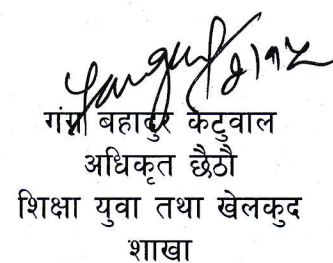 २।१५
गंगा बहादुर कटुवाल
अधिकृत छैठौ
शिक्षा युवा तथा खेलकुद
शाखा